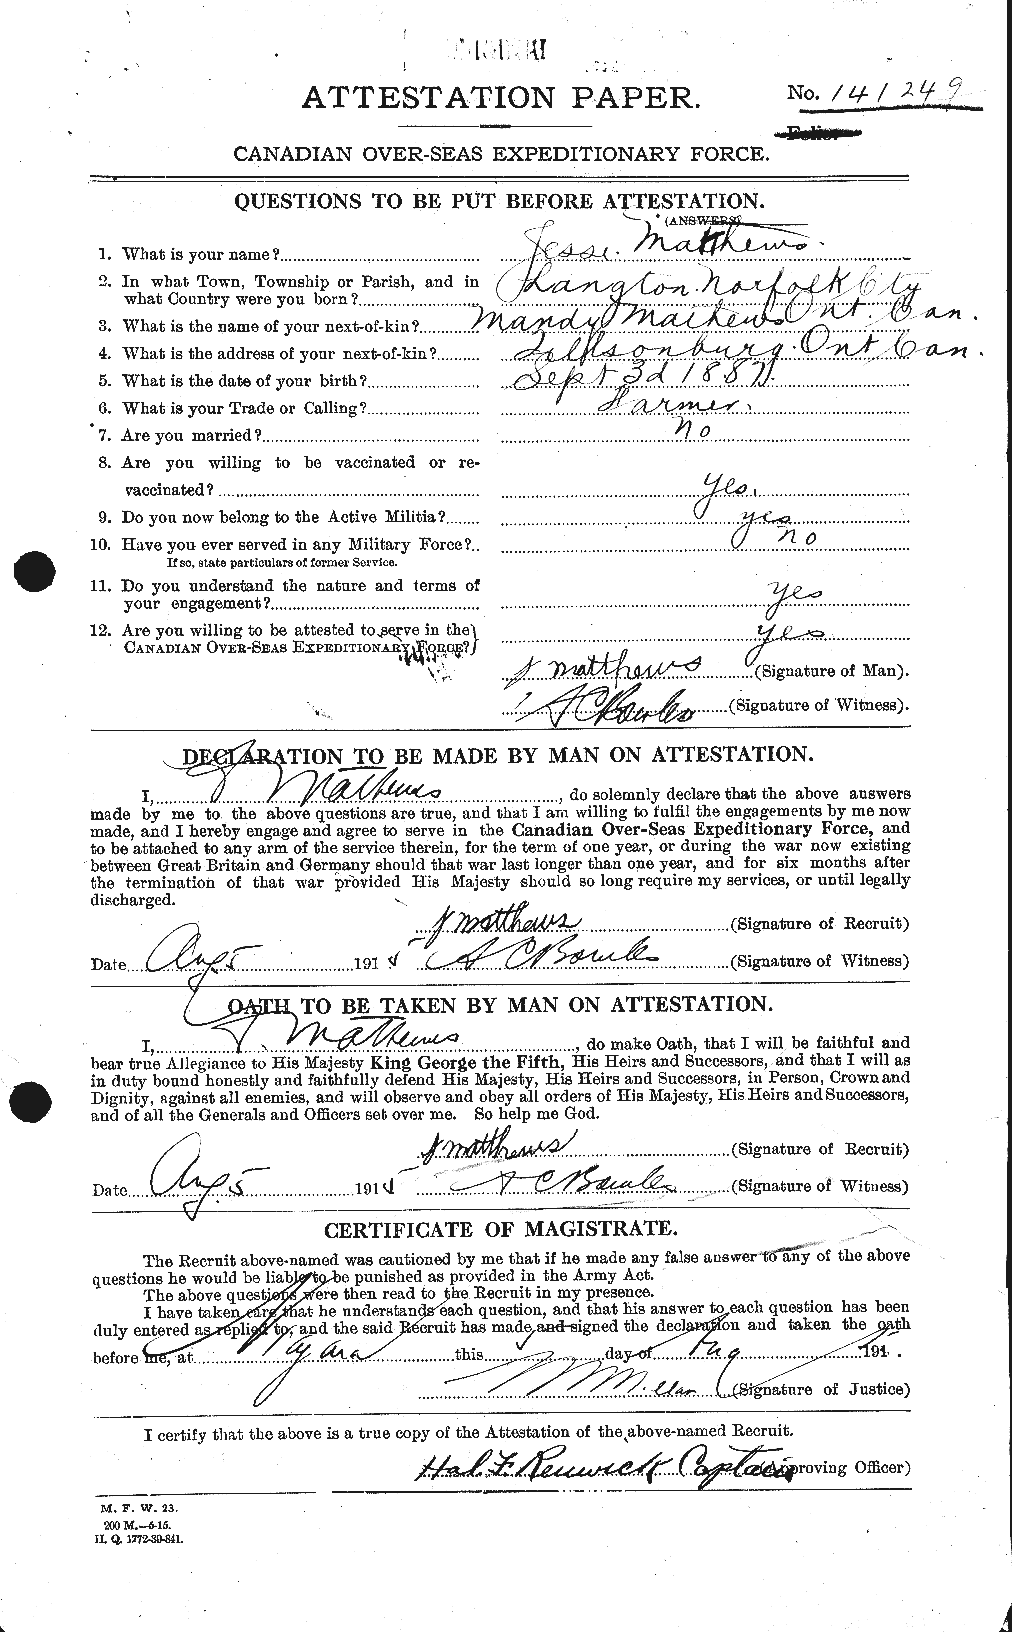 ATTESTATION PAPER.
No. 141249
Folio.
CANADIAN OVER-SEAS EXPEDITIONARY FORCE.
QUESTIONS TO BE PUT BEFORE ATTESTATION.
(ANSWERS)
1. What is your name? Jesse. Matthews.
2. In what Town, Township or Parish, and in
what Country were you born? Langton Norfolk Cty
Ont. Can.
3. What is the name of your next-of-kin? Mandy Mathews
4. What is the address of your next-of-kin? Tillsonburg. Ont Can.
5. What is the date of your birth? Sept 3d 1887.
6. What is your Trade or Calling? Farmer.
7. Are you married? No
8. Are you willing to be vaccinated or re-
vaccinated? Yes.
9. Do you now belong to the Active Militia? yes
10. Have you ever served in any Military Force? no
If so, state particulars of former Service.
11. Do you understand the nature and terms of
your engagement? yes
12. Are you willing to be attested to serve in the
CANADIAN OVER-SEAS EXPEDITIONARY FORCE? yes
J Matthews (Signature of Man).
A C Bowles (Signature of Witness).
DECLARATION TO BE MADE BY MAN ON ATTESTATION.
I, J Mathews, do solemnly declare that the above answers
made by me to the above questions are true, and that I am willing to fulfil the engagements by me now
made, and I hereby engage and agree to serve in the Canadian Over-Seas Expeditionary Force, and
to be attached to any arm of the service therein, for the term of one year, or during the war now existing
between Great Britain and Germany should that war last longer than one year, and for six months after
the termination of that war provided His Majesty should so long require my services, or until legally
discharged.
J Matthews (Signature of Recruit)
Date Aug 5 1915 A C Bowles (Signature of Witness)
OATH TO BE TAKEN BY MAN ON ATTESTATION.
I, J. Mathews, do make Oath, that I will be faithful and
bear true Allegiance to His Majesty King George the Fifth, His Heirs and Successors, and that I will as
in duty bound honestly and faithfully defend His Majesty, His Heirs and Successors, in Person, Crown and
Dignity, against all enemies, and will observe and obey all orders of His Majesty, His Heirs and Successors,
and of all the Generals and Officers set over me. So help me God.
J Matthews (Signature of Recruit)
Date Aug 5 1915 A C Bowles (Signature of Witness)
CERTIFICATE OF MAGISTRATE.
The Recruit above-named was cautioned by me that if he made any false answer to any of the above
questions he would be liable to be punished as provided in the Army Act.
The above questions were then read to the Recruit in my presence.
I have taken care that he understands each question, and that his answer to each question has been
duly entered as replied to, and the said Recruit has made and signed the declaration and taken the oath
before me, at Niagara this 5 day of Aug 191 .
(Signature of Justice)
I certify that the above is a true copy of the Attestation of the above-named Recruit.
Hal. F. Renwick Captain (Approving Officer)
M. F. W. 23.
200 M.—6-15.
H. Q. 1772-39-841.